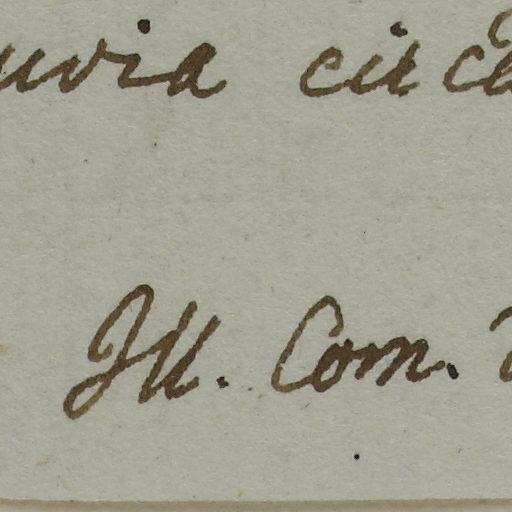 uvia circa
Ill. Com.